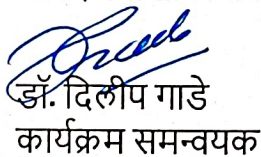 डॉ. दिलीप गाडे
कार्यक्रम समन्वयक